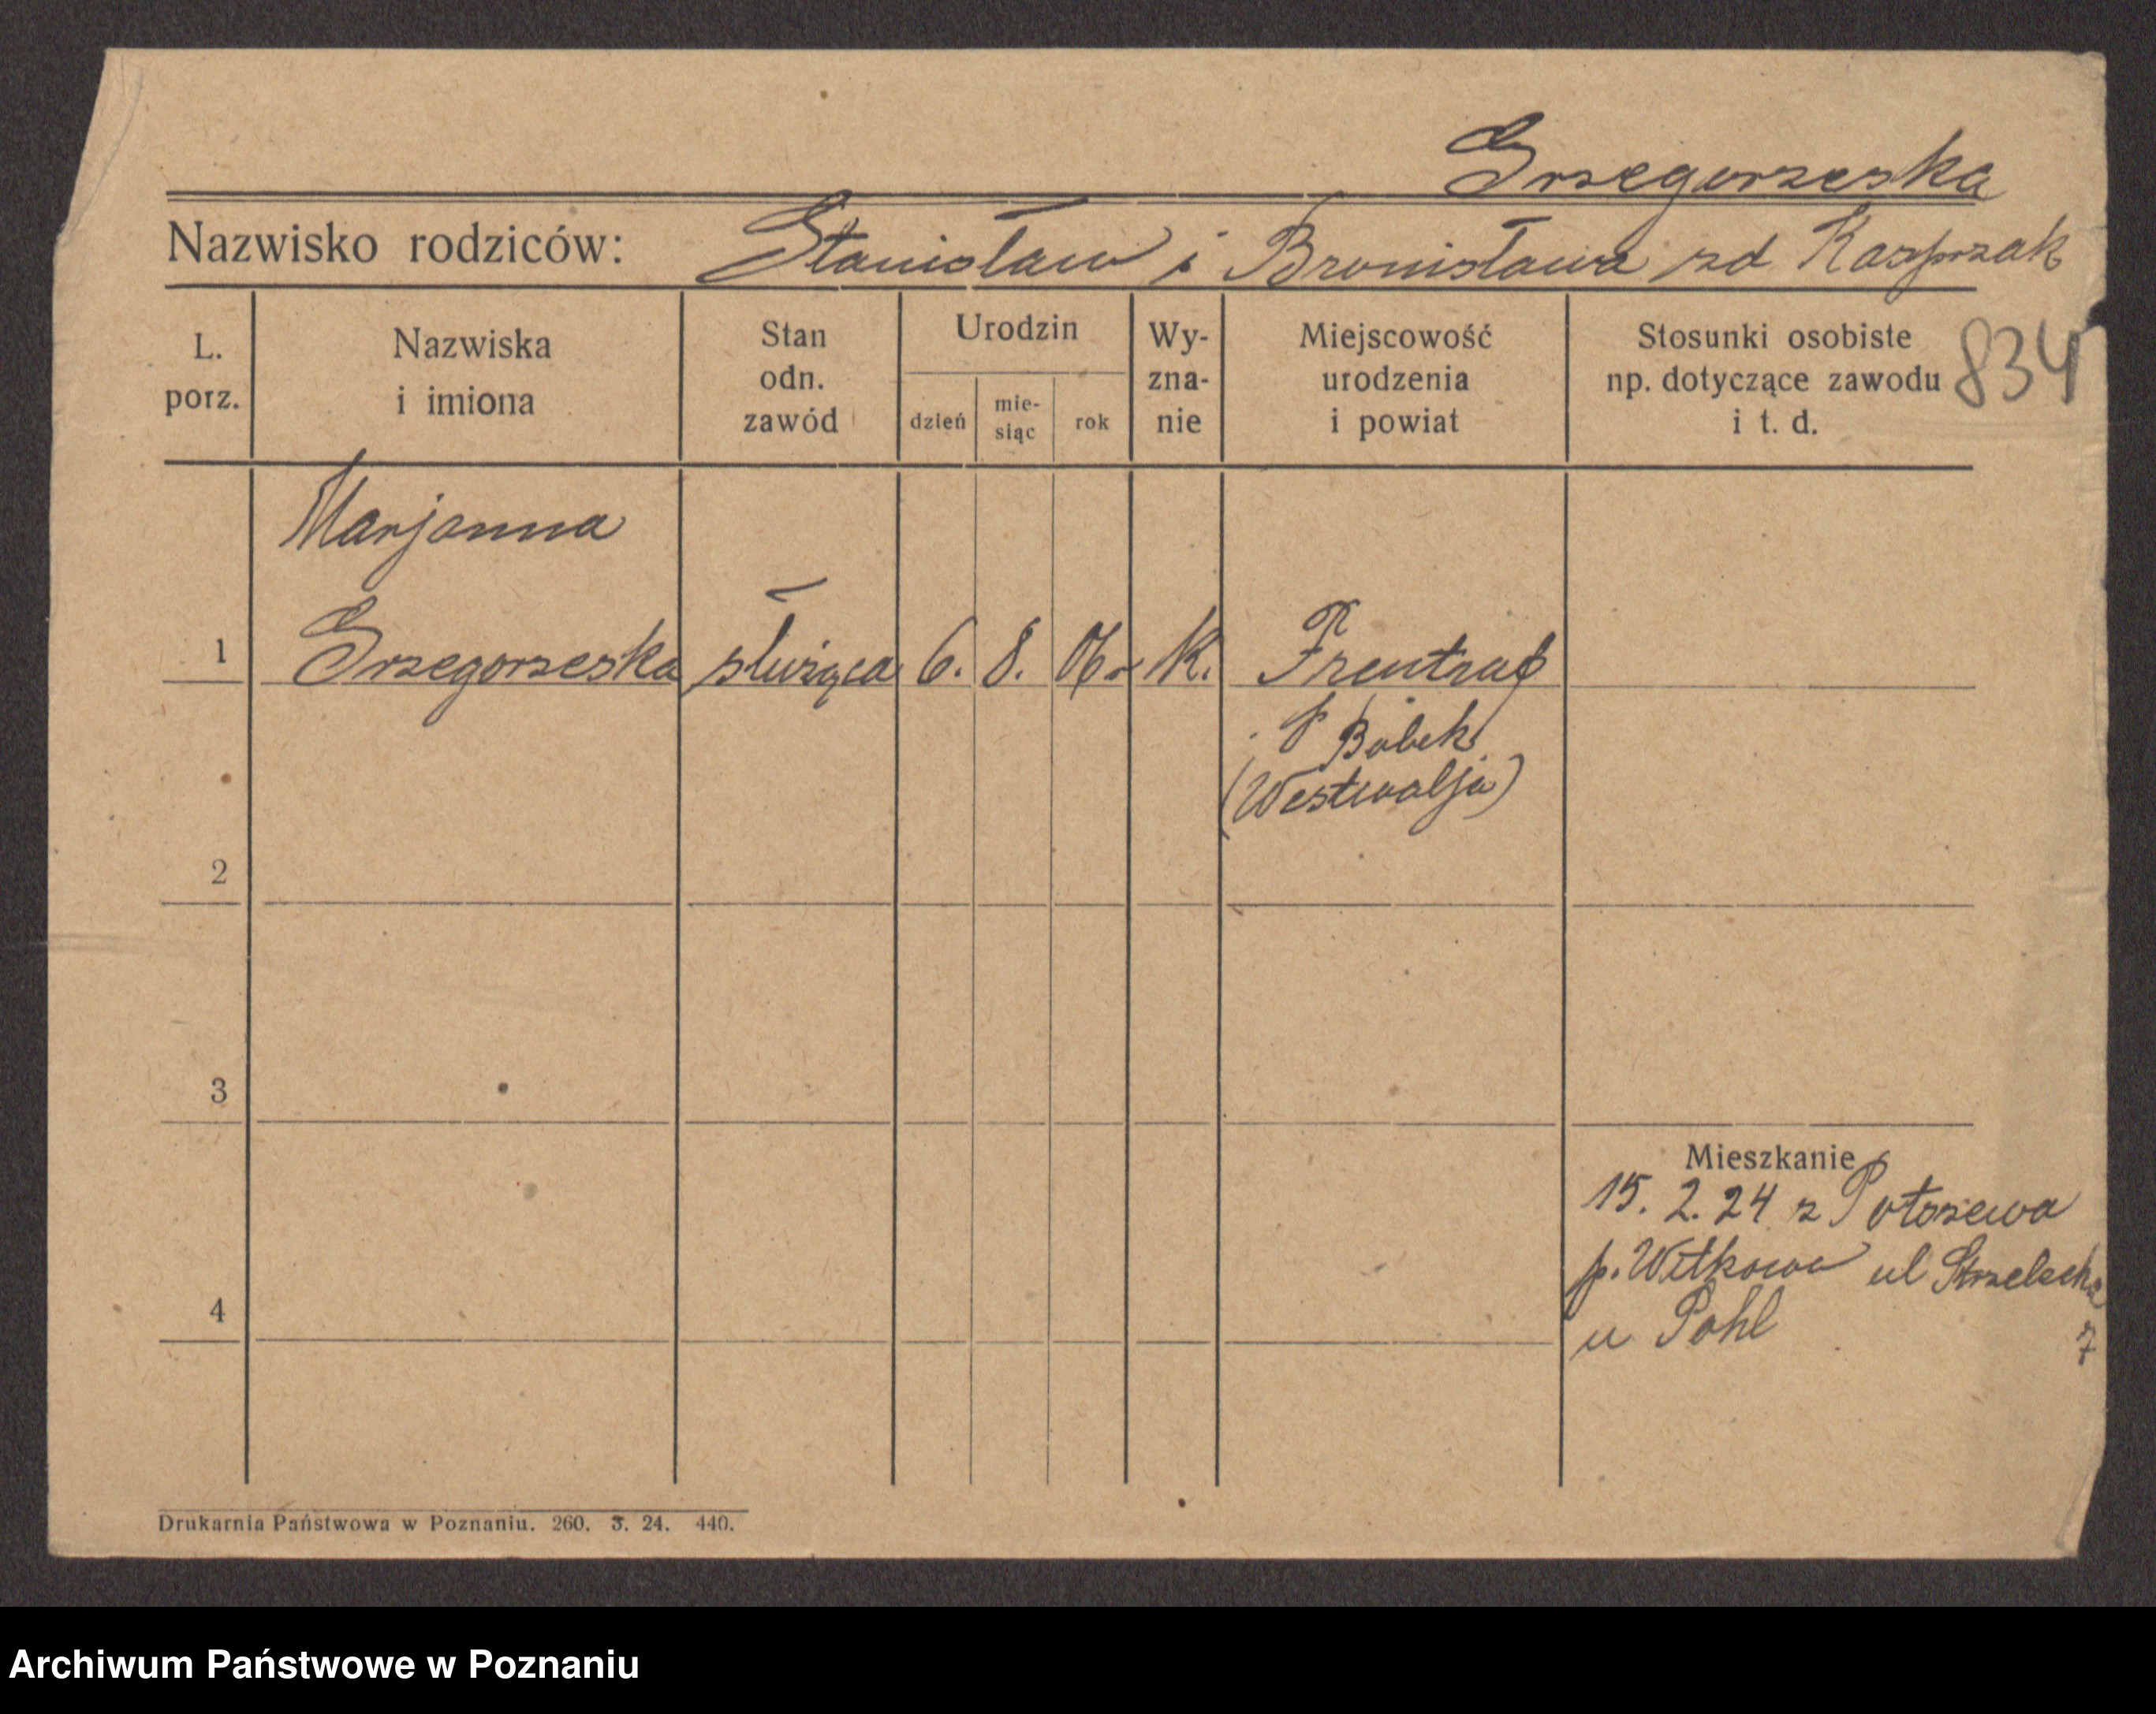 Grzegorzeska
Nazwisko rodziców: Stanisław i Bronisława zd Kasprzak
834
L. porz.
Nazwiska i imiona
Stan odn. zawód
Urodzin
dzień
mie-siąc
rok
Wy-zna-nie
Miejscowość urodzenia i powiat
Stosunki osobiste np. dotyczące zawodu i t. d.
Marjanna
1 Grzegorzeska służąca 6. 8. 06. K.
p Bobek
(Westwalja)
2
3
Mieszkanie
15. 2. 24 z
p. Witkowo ul Strzelecka
4
u Pohl
7
Drukarnia Państwowa w Poznaniu. 260. 3. 24. 440.
Archiwum Państwowe w Poznaniu